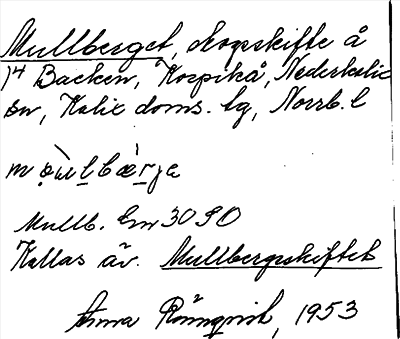 Mullberget, skogsskifte å
1⁴ Backen, Korpikå, Nederkalix
sn, Kalix doms. lg, Norrb. l
Mullb. Em 30 SO
Kallas äv. Mullbergsskiftet
Anna Rönnqvist, 1953